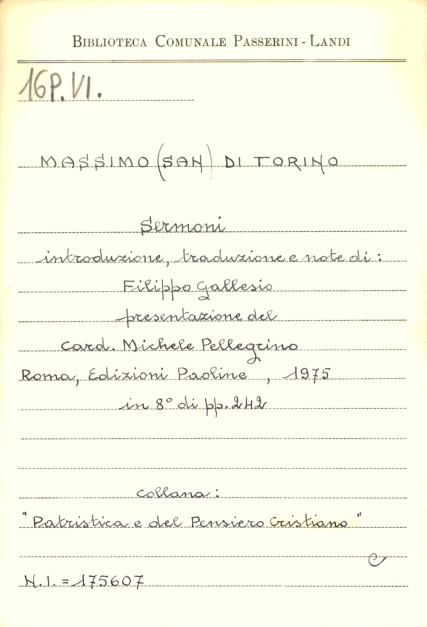 BIBLIOTECA COMUNALE PASSERINI - LANDI
16P.VI.
MASSIMO (SAN) DI TORINO
Sermoni
introduzione, traduzione e note di:
Filippo Gallesio
presentazione del
card. Michele Pellegrino
Roma, Edizioni Paoline, 1975
in 8° di pp. 242
collana:
"Patristica e del Pensiero Cristiano"
C
N.I. = 175607